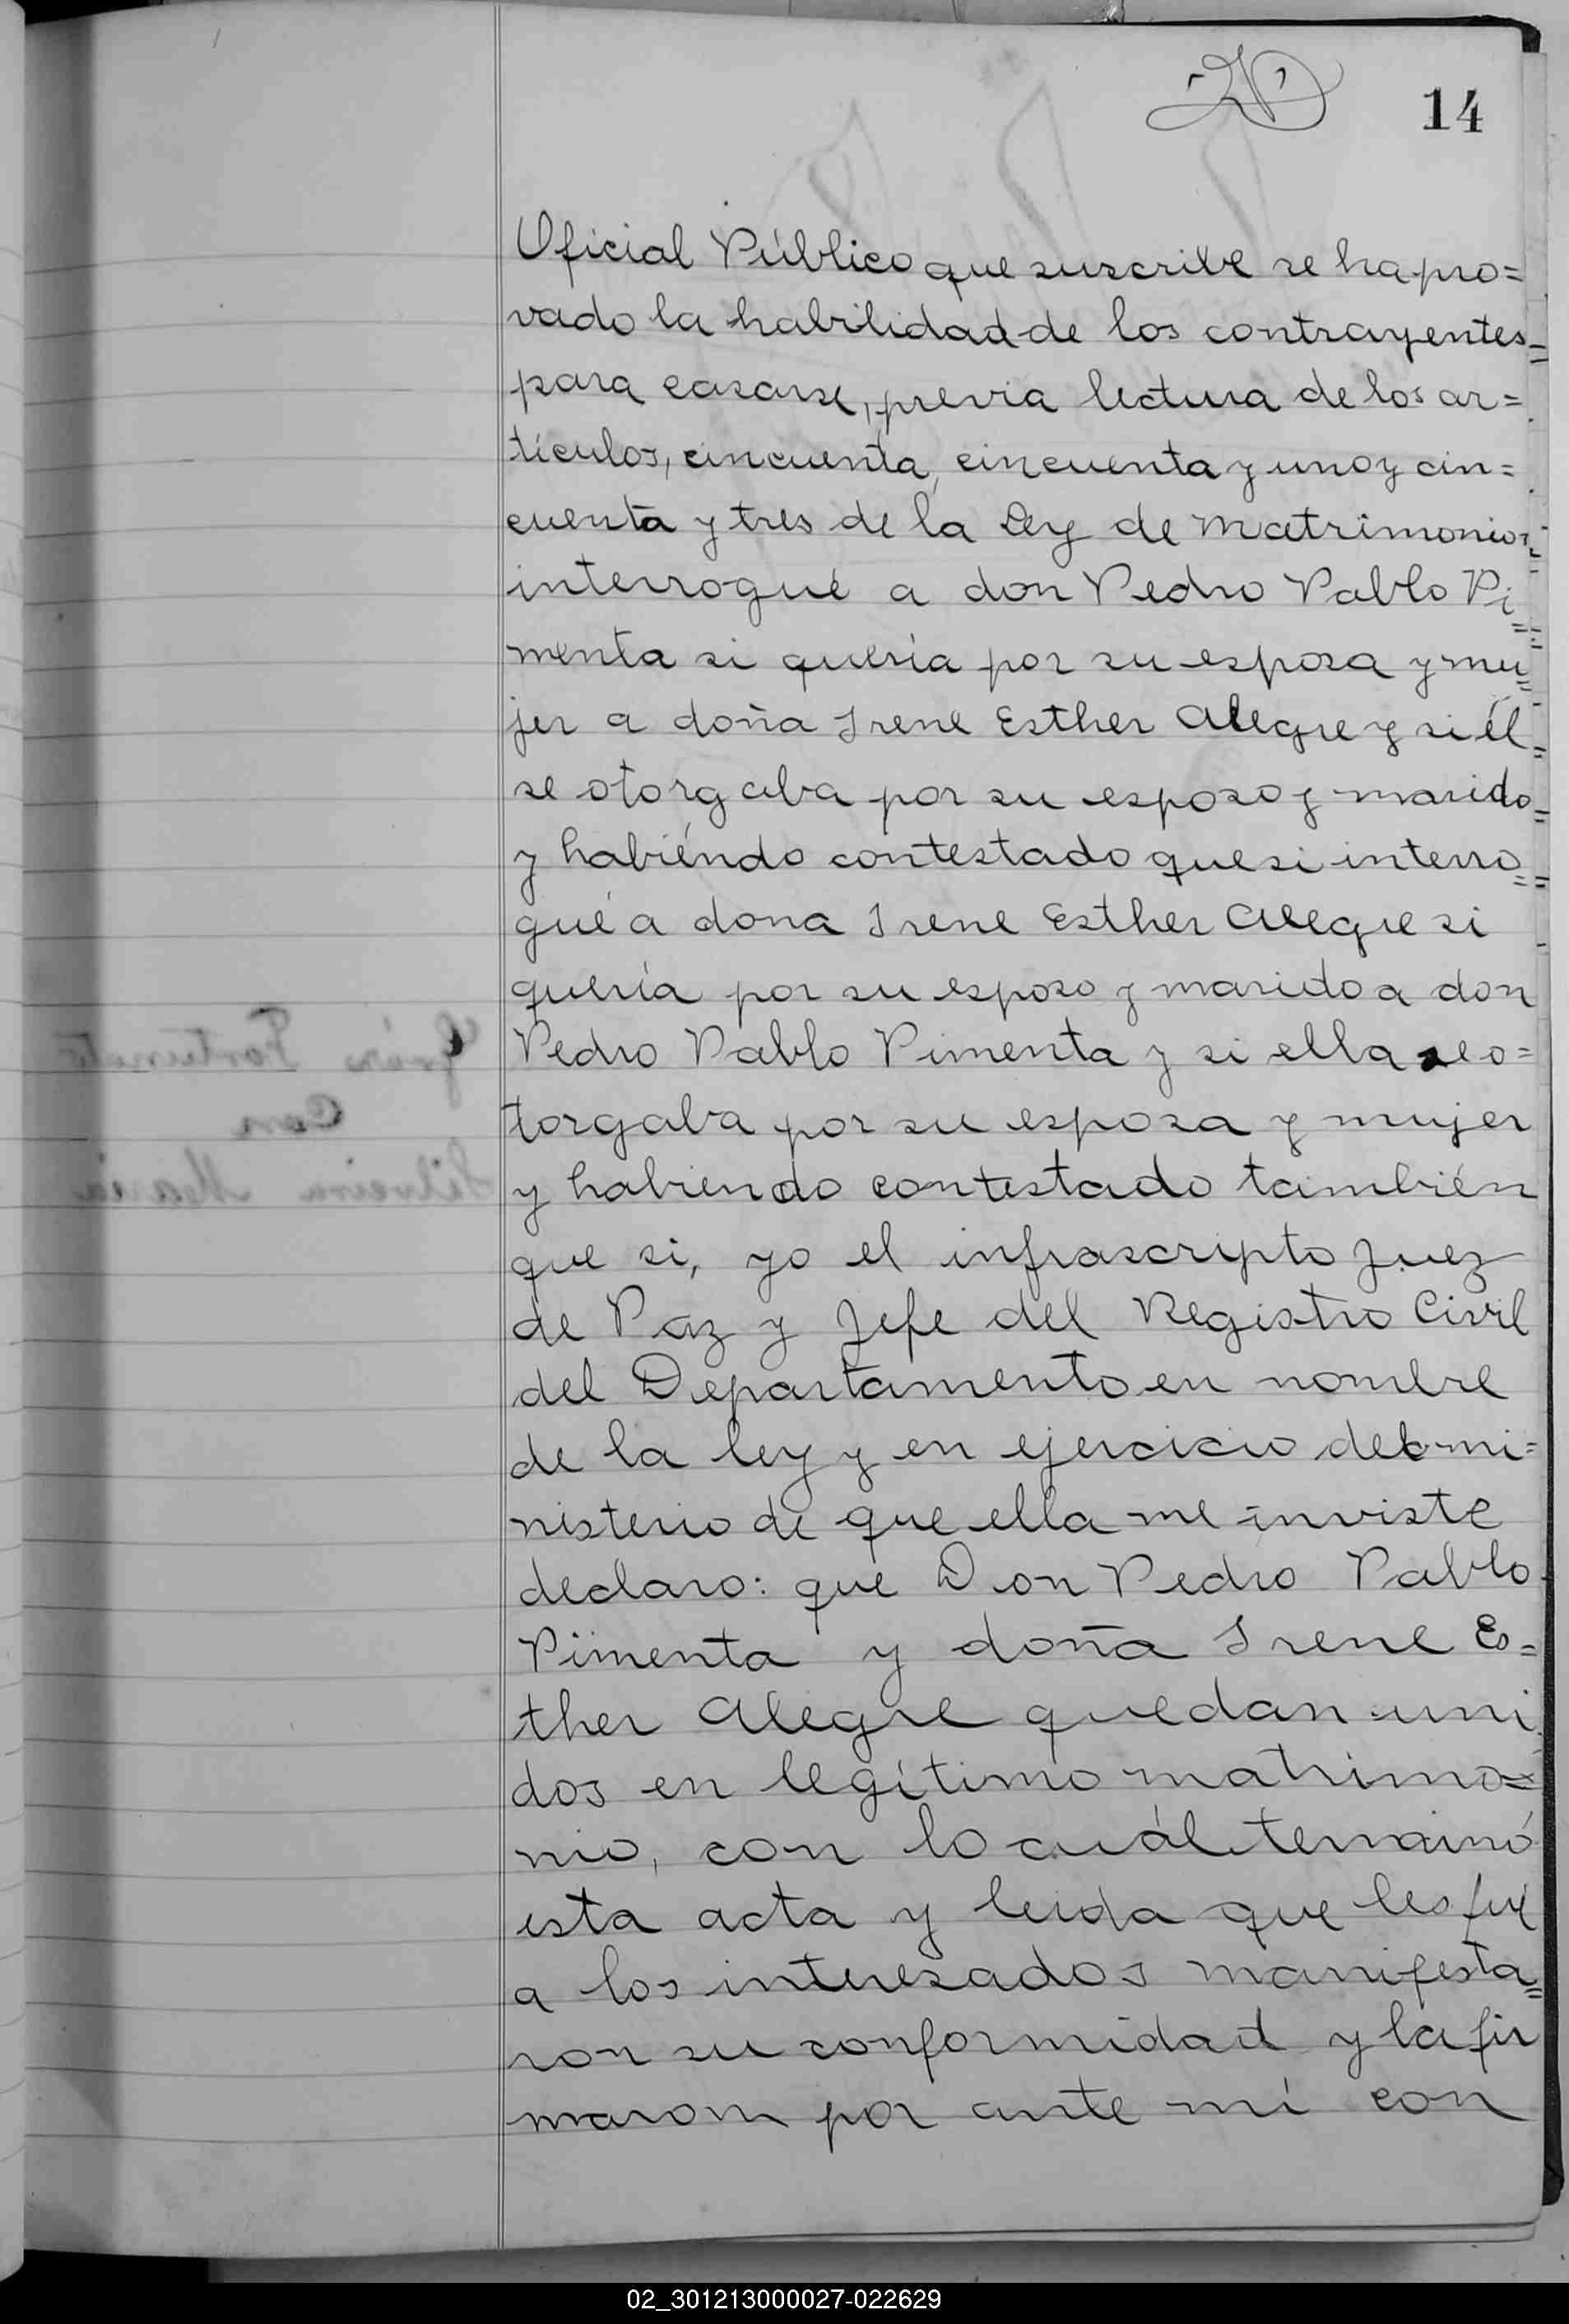 14
Oficial Público que suscribe se ha pro=
vado la habilidad de los contrayentes=
para casarse, previa lectura de los ar=
tículos, cincuenta, cincuenta y uno y cin=
cuenta y tres de la Ley de Matrimonio,=
interrogué a don Pedro Pablo Pi=
menta si quería por su esposa y mu=
jer a doña Irene Esther Alegre y si él=
se otorgaba por su esposo y marido=
y habiéndo contestado que si interro=
gué a dona Irene Esther Alegre si
quería por su esposo y marido a don
Pedro Pablo Pimenta y si ella se o=
torgaba por su esposa y mujer
y habiendo contestado también
que si, yo el infrascripto Juez
de Paz y Jefe del Registro Civil
del Departamento en nombre
de la ley y en ejercicio del mi=
nisterio de que ella me inviste
declaro: que Don Pedro Pablo
Pimenta y doña Irene Es=
ther Alegre quedan uni
dos en legítimo matrimo=
nio, con lo cuál terminó
esta acta y leida que les fué
a los interesados manifesta=
ron su conformidad y la fir
maron por ante mí con
02_301213000027-022629